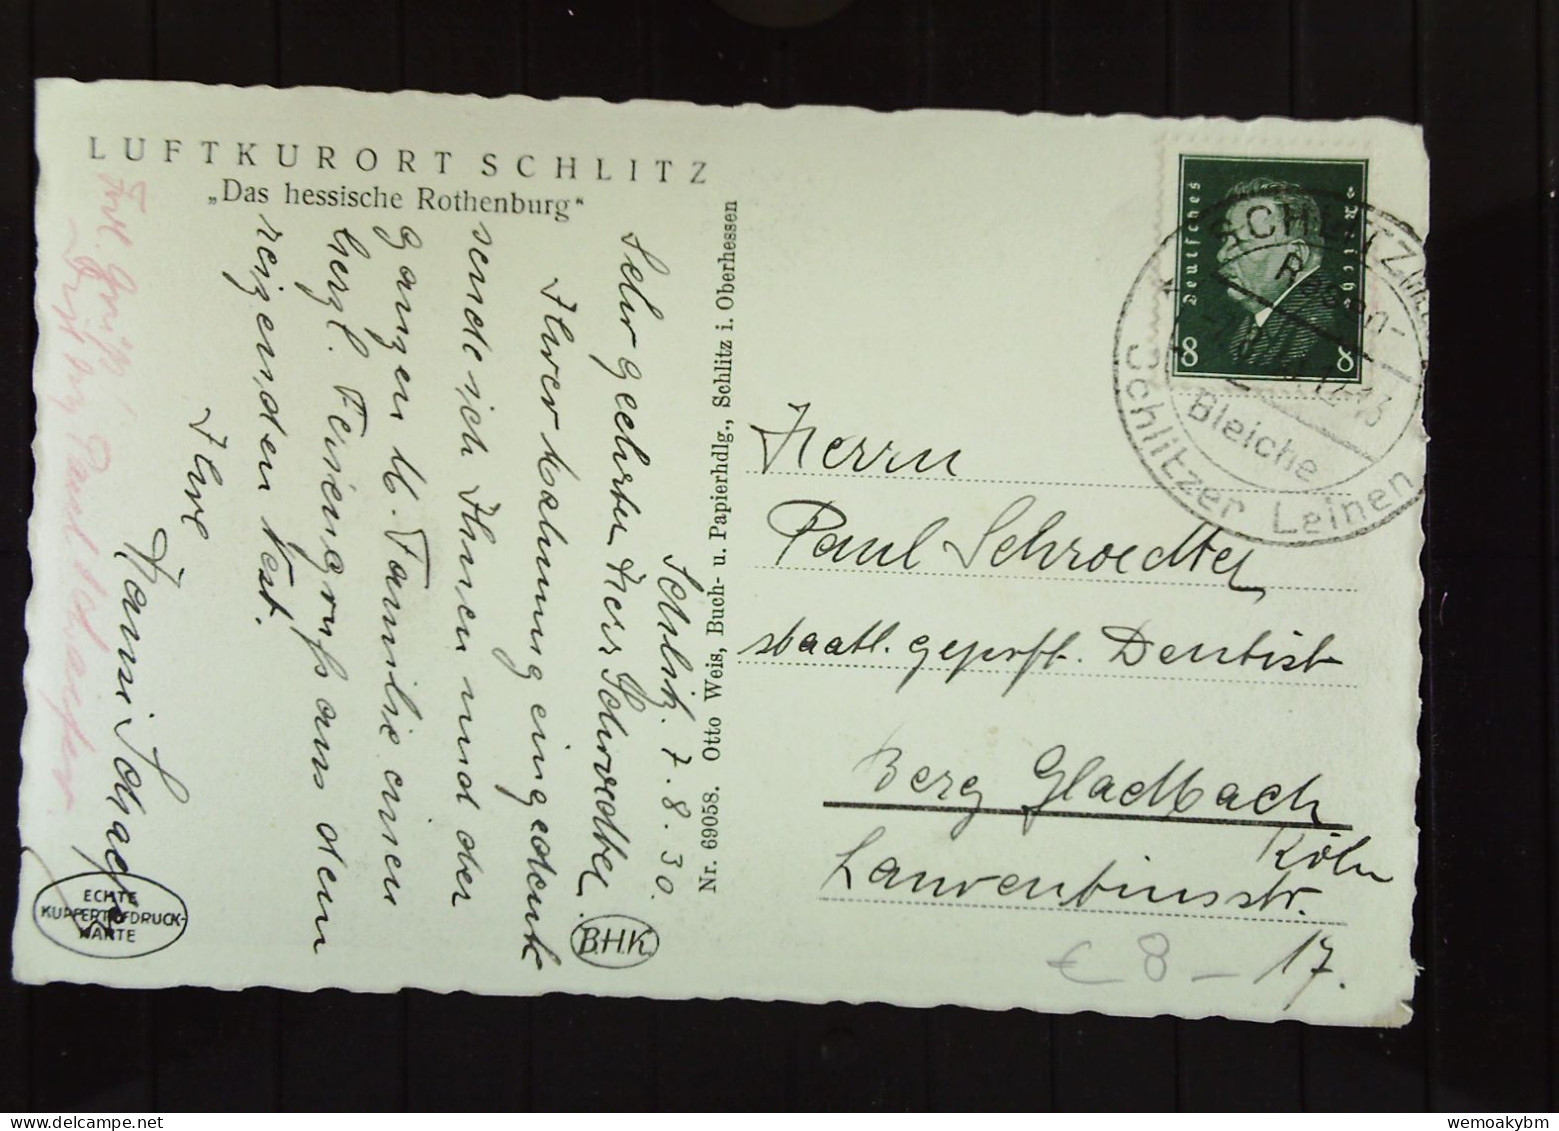 LUFTKURORT SCHLITZ
„Das hessische Rothenburg"
Schlitz. 7.8.30.
Sehr geehrter Herr Schroedter.
Ihrer Mahnung eingedenk
sende ich Ihnen und der
ganzen w. Familie einen
herzl. Feriengruß aus dem
reizenden Nest.
Ihre
Hanni Schaefer
Frdl. Grüße
Paul Schaefer
ECHTE
KUPFERTIEFDRUCK-
KARTE
B.H.K.
Nr. 69058. Otto Weis, Buch- u. Papierhdlg., Schlitz i. Oberhessen
Deutsches Reich
8 8
SCHLITZ
Rasen-
12-13
Bleiche
Schlitzer Leinen
Herrn
Paul Schroedter
staatl. geprft. Dentist
Berg Gladbach
Köln
Laurentiusstr.
17.
€ 8 –
wemoakybm